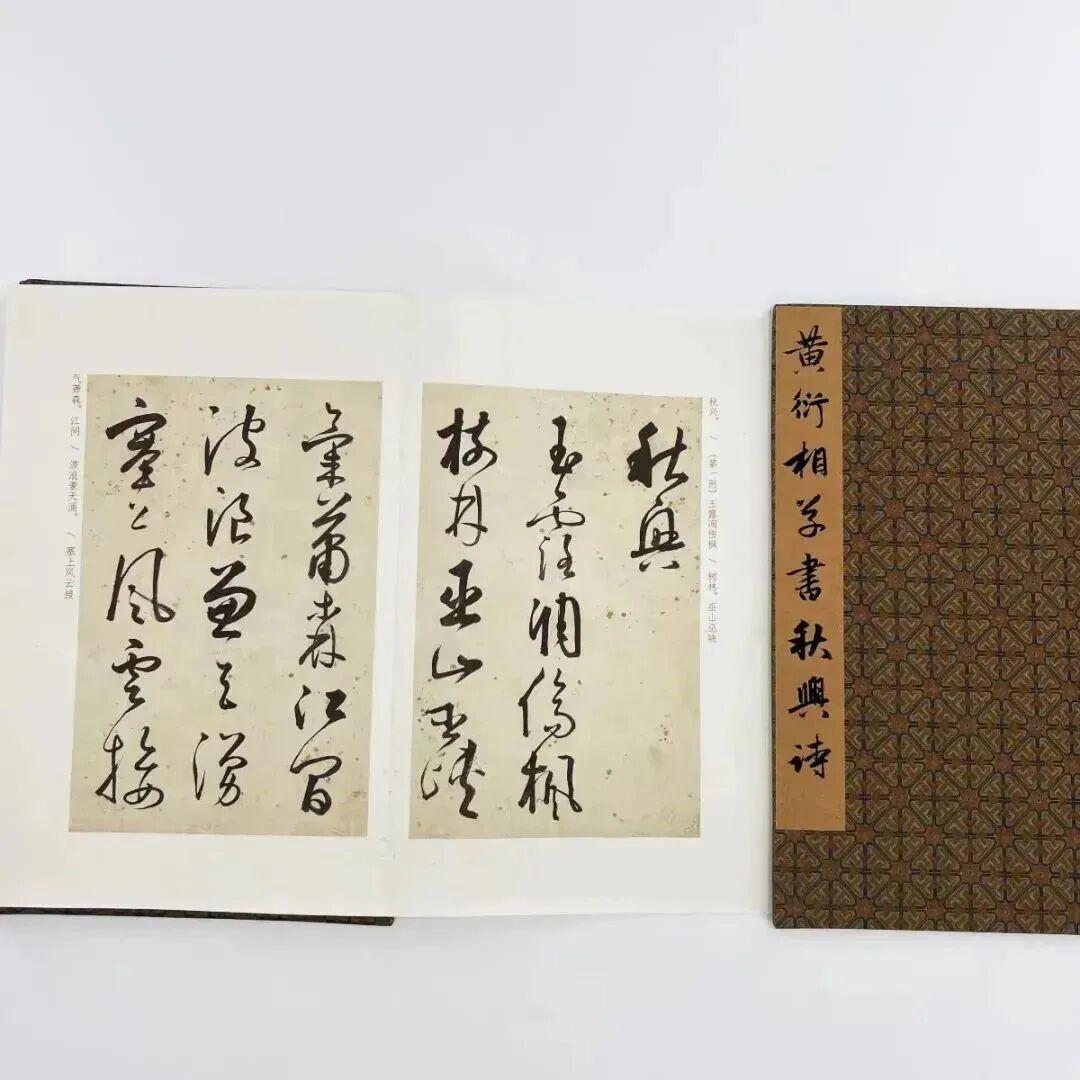 黄衍相草書秋興诗
秋兴。/(第一则)玉露凋伤枫 / 树林。巫山巫峡
秋興
玉露凋傷楓
樹林巫山巫峽
氣蕭森江間
波浪兼天湧
塞上風雲接
气萧森。江间 / 波浪兼天涌。/ 塞上风云接